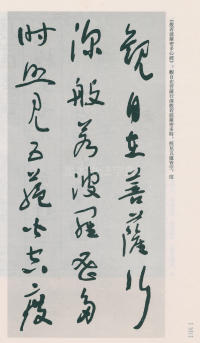 《般若波羅蜜多心經》：觀自在菩薩行深般若波羅蜜多時，照見五蘊皆空，度
觀自在菩薩行
深般若波羅蜜多
時照見五蘊皆空度